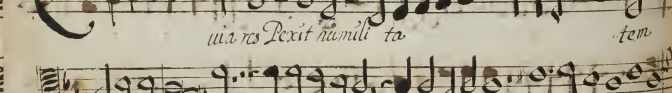 uia res Pexit humili ta tem